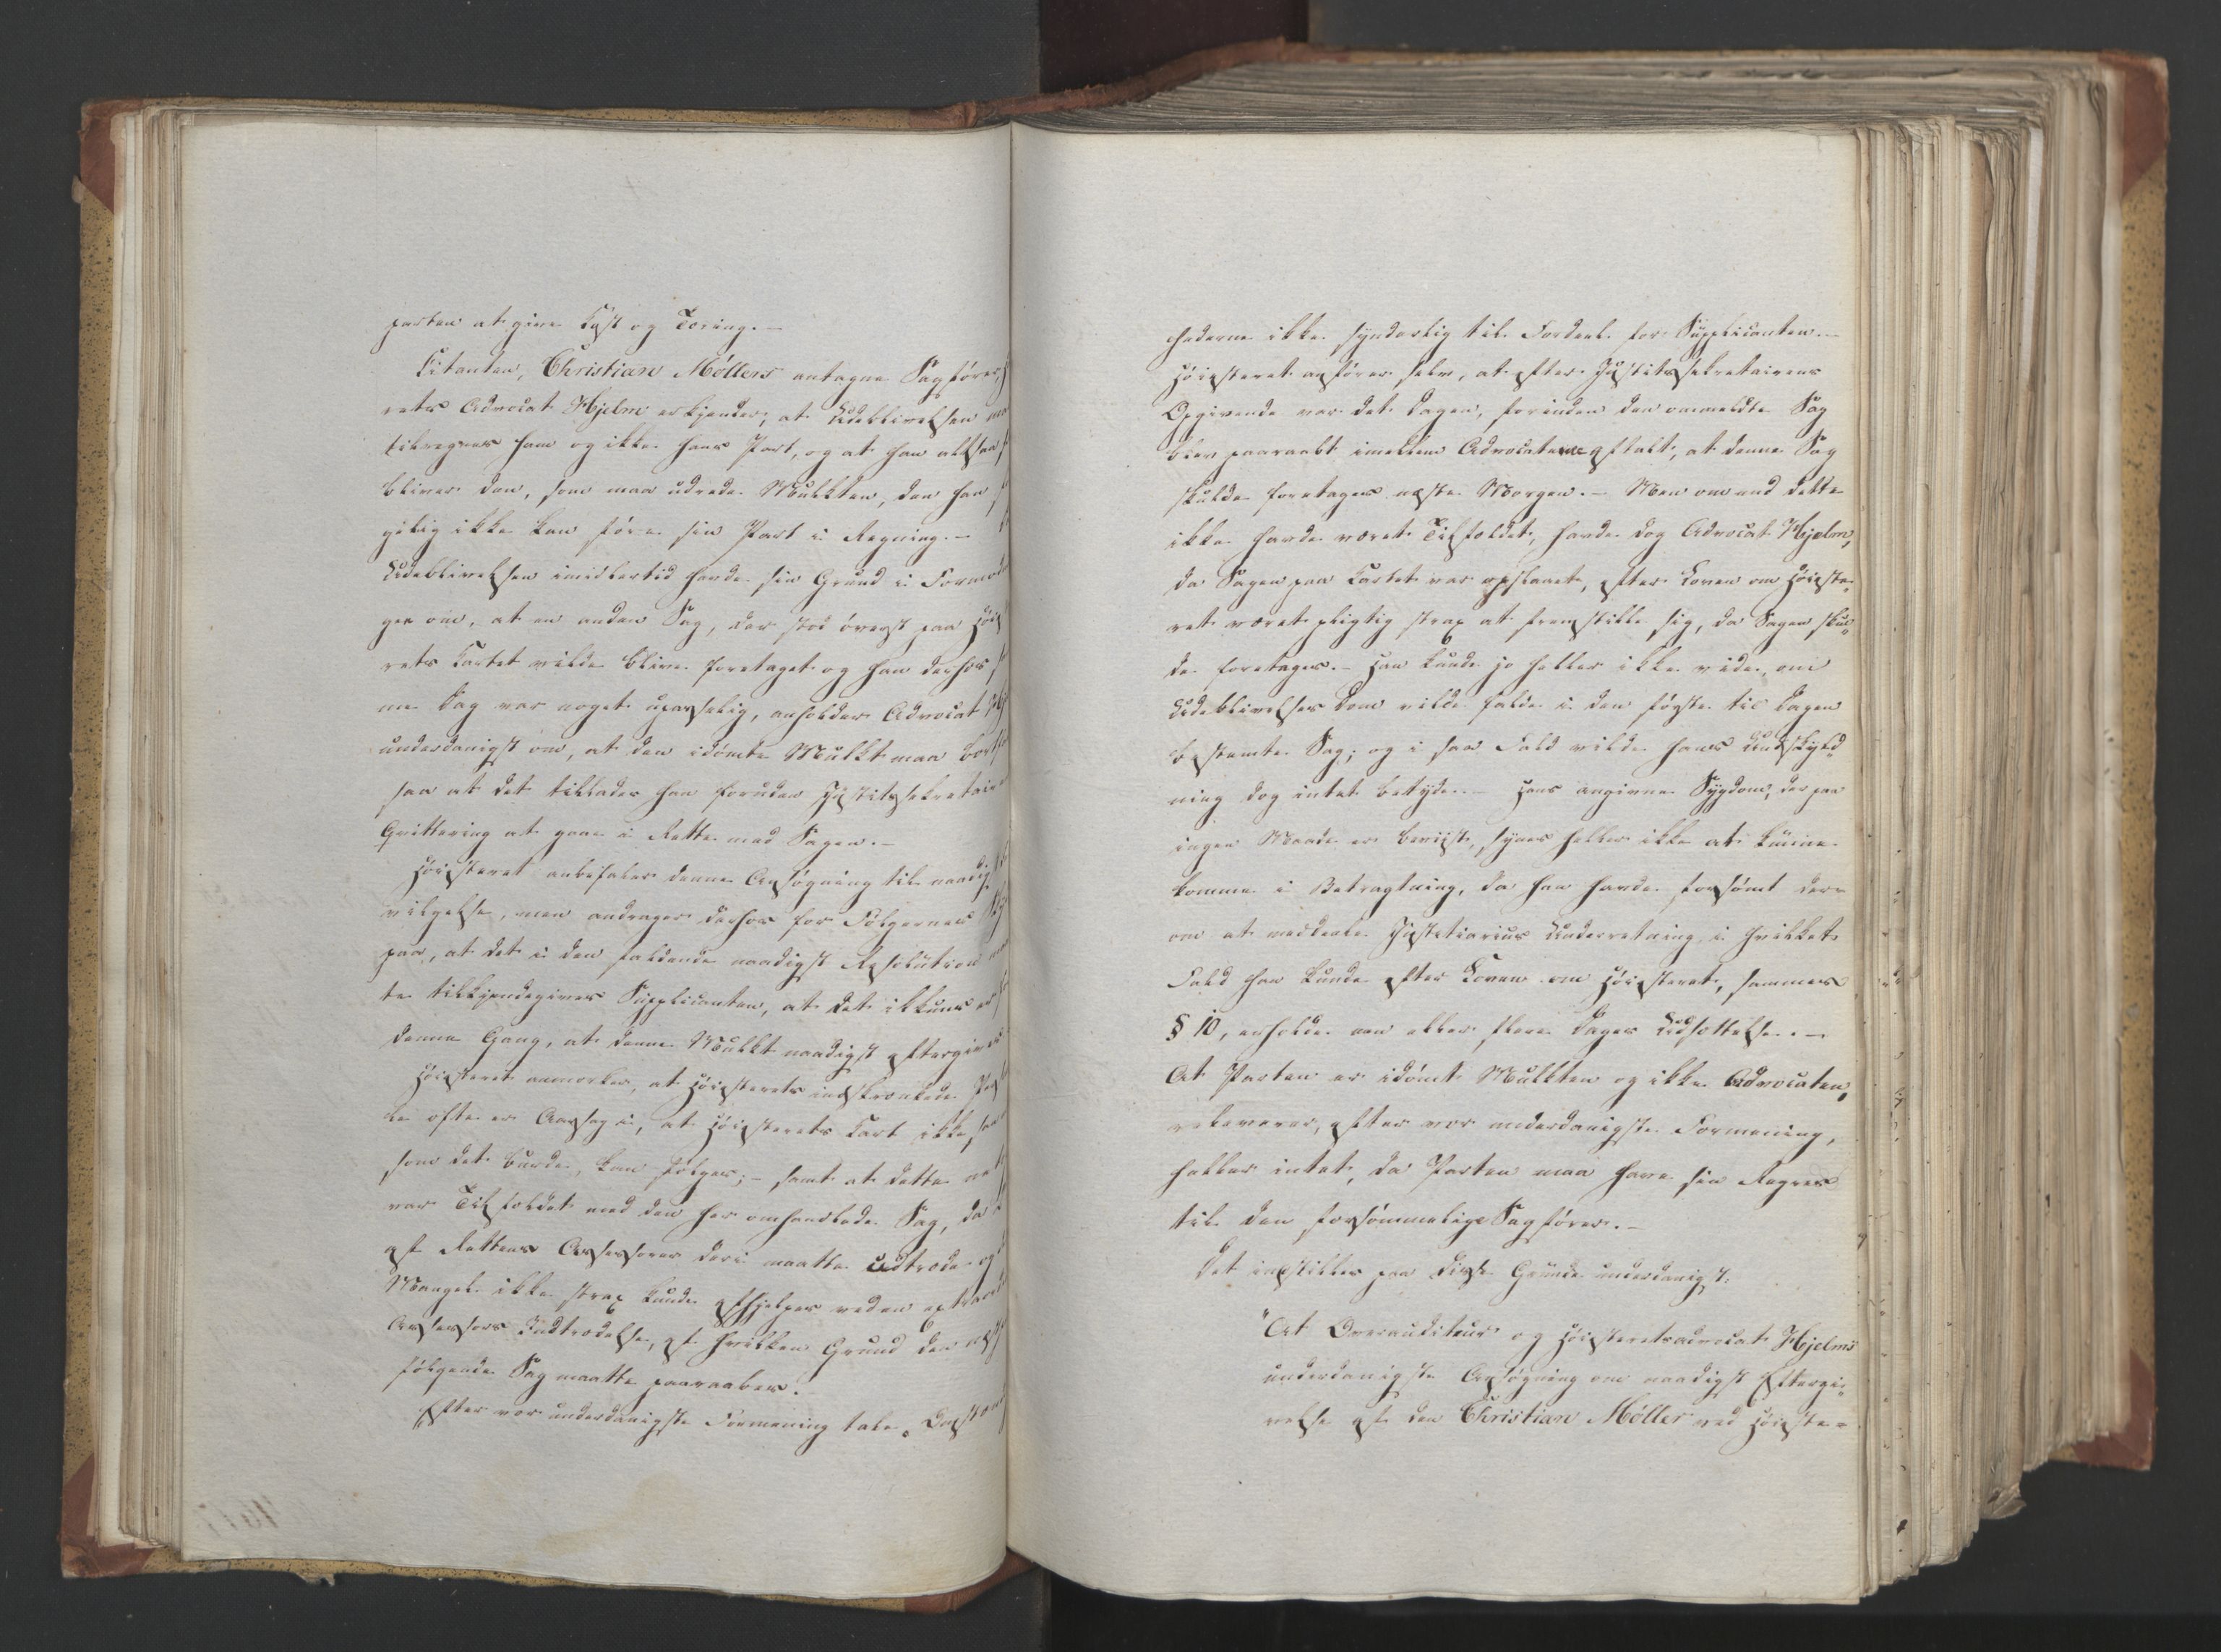 parten at give Kost og Tæring. —
Citanten, Christian Möllers antagne Sagfører,
rets Advocat Hjelm erkjender, at Udeblivelsen maa
tilregnes ham og ikke hans Part, og at han altsaa
bliver den, som maa udrede Mulkten, den han
gilig ikke kan føre sin Part i Regning. —
Udeblivelsen imidlertid havde sin Grund i Formod
gen om, at en anden Sag, der stod øverst paa Høies
rets Kartet vilde blive foretaget og han derhos
ne Dag var noget upasselig, anholder Advocat Hj
underdanigst om, at den idømte Mulkt maa bort
saa at det tillades ham foruden Justitssekretair
Qvittering at gaae i Rette med Sagen. —
Høiesteret anbefaler denne Ansøgning til naadig
vilgelse, men andrager derhos for Følgernes
paa, at det i den faldende naadigst Resolution
te tilkjendegives Supplicanten, at det ikkuns er
denne Gang, at denne Mulkt naadigst eftergives
Høiesteret anmærker, at Høiesterets indskrænkede
le ofte er Aarsag i, at Høiesterets Kart ikke saa
som det burde, kan følges; — samt at dette net
var Tilfældet med den her omhandlede Sag, da
af Rettens Assessorer deri maatte udtræde og
Mangel ikke strax kunde afhjelpes ved en extraord
Assessors Indtrædelse, af hvilken Grund den næst
følgende Sag maatte paaraabes.
Efter vor underdanigste Formening tale Omstæn
hederne ikke synderlig til Fordeel for Supplicanten. —
Høiesteret anfører selv, at efter Justitssekretairens
Opgivende var det Dagen, forinden den ommeldte Sag
blev paaraabt imellem Advocaterne aftalt, at denne Sag
skulde foretages næste Morgen. — Men om end dette
ikke havde været Tilfældet, havde dog Advocat Hjelm,
da Sagen paa Kartet var opslaaet, efter Loven om Høieste,
ret været pligtig strax at fremstille sig, da Sagen skul,
de foretages. — Han kunde jo heller ikke vide, om
Udeblivelses Dom vilde falde i den første til Dagen
bestemte Sag; og i saa Fald vilde hans Undskyld,
ning dog intet betyde. — Hans angivne Sygdom, der paa
ingen Maade er beviist, synes heller ikke at kunne
komme i Betragtning, da han havde forsømt der
om at meddele Justitiarius Underretning, i hvilket
Fald han kunde efter Loven om Høiesteret, sammes
§ 10, erholde een eller flere Dages Udsættelse. —
At Parten er idømt Mulkten og ikke Advocaten,
releverer, efter vor underdanigste Formening,
heller intet, da Parten maa have sin Regres
til den forsømmelige Sagfører. —
Det indstilles paa disse Grunde underdanigst:
"At Overauditeur og Høiesteretsadvocat Hjelms
underdanigste Ansøgning om naadigst Eftergi,
velse af den Christian Möller ved Høieste=